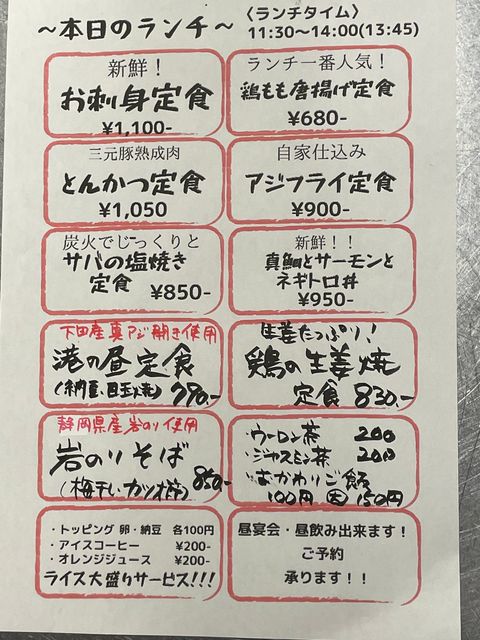 〜本日のランチ〜
〈ランチタイム〉
11:30〜14:00(13:45)
新鮮！
お刺身定食
¥1,100-
ランチ一番人気！
鶏もも唐揚げ定食
¥680-
三元豚熟成肉
とんかつ定食
¥1,050
自家仕込み
アジフライ定食
¥900-
炭火でじっくりと
サバの塩焼き
定食 ¥850-
新鮮！！
真鯛とサーモンと
ネギトロ丼
¥950-
下田産真アジ開き使用
港の昼定食
(納豆、目玉焼) 790.-
生姜たっぷり！
鶏の生姜焼
定食 830.-
静岡県産岩のり使用
岩のりそば
(梅干し、カツオ節) 850.-
・ウーロン茶 200
・ジャスミン茶 200
・おかわりご飯
100円 大 150円
・トッピング 卵・納豆 各100円
・アイスコーヒー ¥200-
・オレンジジュース ¥200-
ライス大盛りサービス!!!
昼宴会・昼飲み出来ます！
ご予約
承ります！！